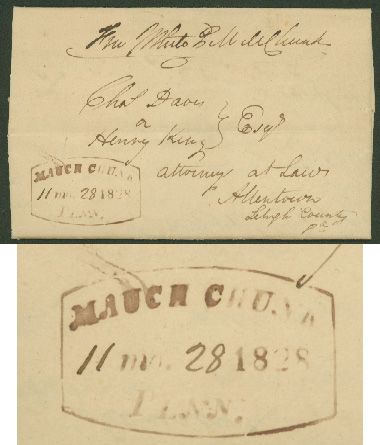 Chas Davis
or
Henry King } Esqs
attorneys at Law
Allentown
Lehigh County
Pa
MAUCH CHUNK
11 mo. 28 1828
PENN.
MAUCH CHUNK
11 mo. 28 1828
PENN.